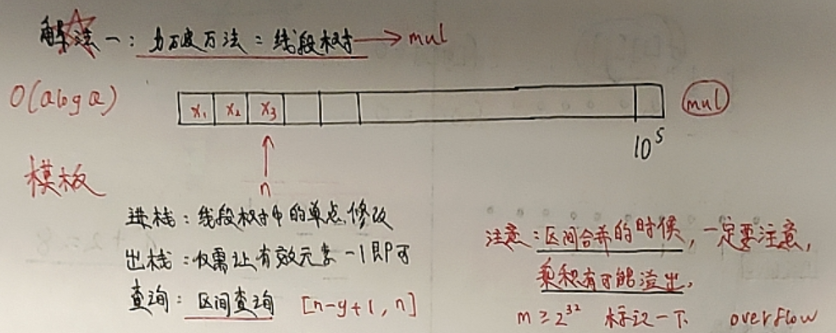 解法一：万能方法：线段树 → mul
O(qlogq)
x₁ x₂ x₃
mul
10⁵
n
模板
进栈：线段树中的单点修改
出栈：仅需让有效元素-1即可
查询：区间查询 [n-y+1, n]
注意：区间合并的时候，一定要注意，
乘积有可能溢出，
m ≥ 2³² 标识一下 overflow